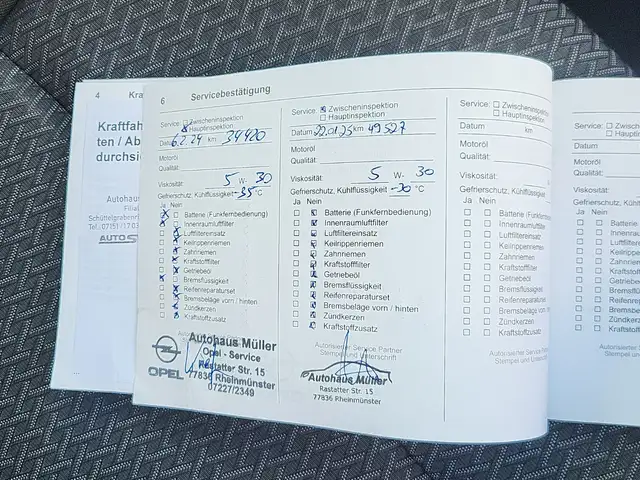 4
Kra
Kraftfah
ten / Ab
durchsi
Autohaus
Filia
Schüttelgrabenri
Tel.: 07151 / 1703
AUTO
6 Servicebestätigung
Service: Zwischeninspektion
Hauptinspektion
Datum 6.2.24 km 34420
Motoröl
Qualität:
Viskosität: 5 W- 30
Gefrierschutz, Kühlflüssigkeit -35 °C
Ja Nein
Batterie (Funkfernbedienung)
Innenraumluftfilter
Luftfiltereinsatz
Keilrippenriemen
Zahnriemen
Kraftstofffilter
Getriebeöl
Bremsflüssigkeit
Reifenreparaturset
Bremsbeläge vorn / hinten
Zündkerzen
Kraftstoffzusatz
Autohaus Müller
Opel - Service
Rastatter Str. 15
77836 Rheinmünster
07227/2349
OPEL
Service: Zwischeninspektion
Hauptinspektion
Datum 22.01.25 km 49527
Motoröl
Qualität:
Viskosität: 5 W- 30
Gefrierschutz, Kühlflüssigkeit -30 °C
Ja Nein
Batterie (Funkfernbedienung)
Innenraumluftfilter
Luftfiltereinsatz
Keilrippenriemen
Zahnriemen
Kraftstofffilter
Getriebeöl
Bremsflüssigkeit
Reifenreparaturset
Bremsbeläge vorn / hinten
Zündkerzen
Kraftstoffzusatz
Autorisierter Service Partner
Stempel und Unterschrift
Autohaus Müller
Rastatter Str. 15
77836 Rheinmünster
Service: Zwischeninspektion
Hauptinspektion
Datum km
Motoröl
Qualität:
Viskosität: W-
Gefrierschutz, Kühlflüssigkeit
Ja Nein
Batterie (Funkfernbed
Innenraumluftfilter
Luftfiltereinsatz
Keilrippenriemen
Zahnriemen
Kraftstofffilter
Getriebeöl
Bremsflüssigkeit
Reifenreparaturset
Bremsbeläge vorn /
Zündkerzen
Kraftstoffzusatz
Autorisierter Service P
Stempel und Untersch
Service:
Datum
Motoröl
Qualität:
Viskosität:
Gefriersch
Ja Nein
Batter
Innen
Luftfi
Keilri
Zahn
Kraft
Getri
Brem
Reife
Brem
Zünd
Kraft
Autorisie
Stempel